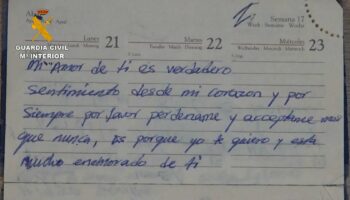 GUARDIA CIVIL
Mº INTERIOR
Lunes
21
Martes
22
Semana 17
Week / Semaine / Woche
Miércoles
23
Mi Amor de ti es verdadero
sentimiento desde mi corazon y por
siempre por favor perdename y acceptame mas
que nunca, es porque yo te quiero y esta
mucho enamorado de ti